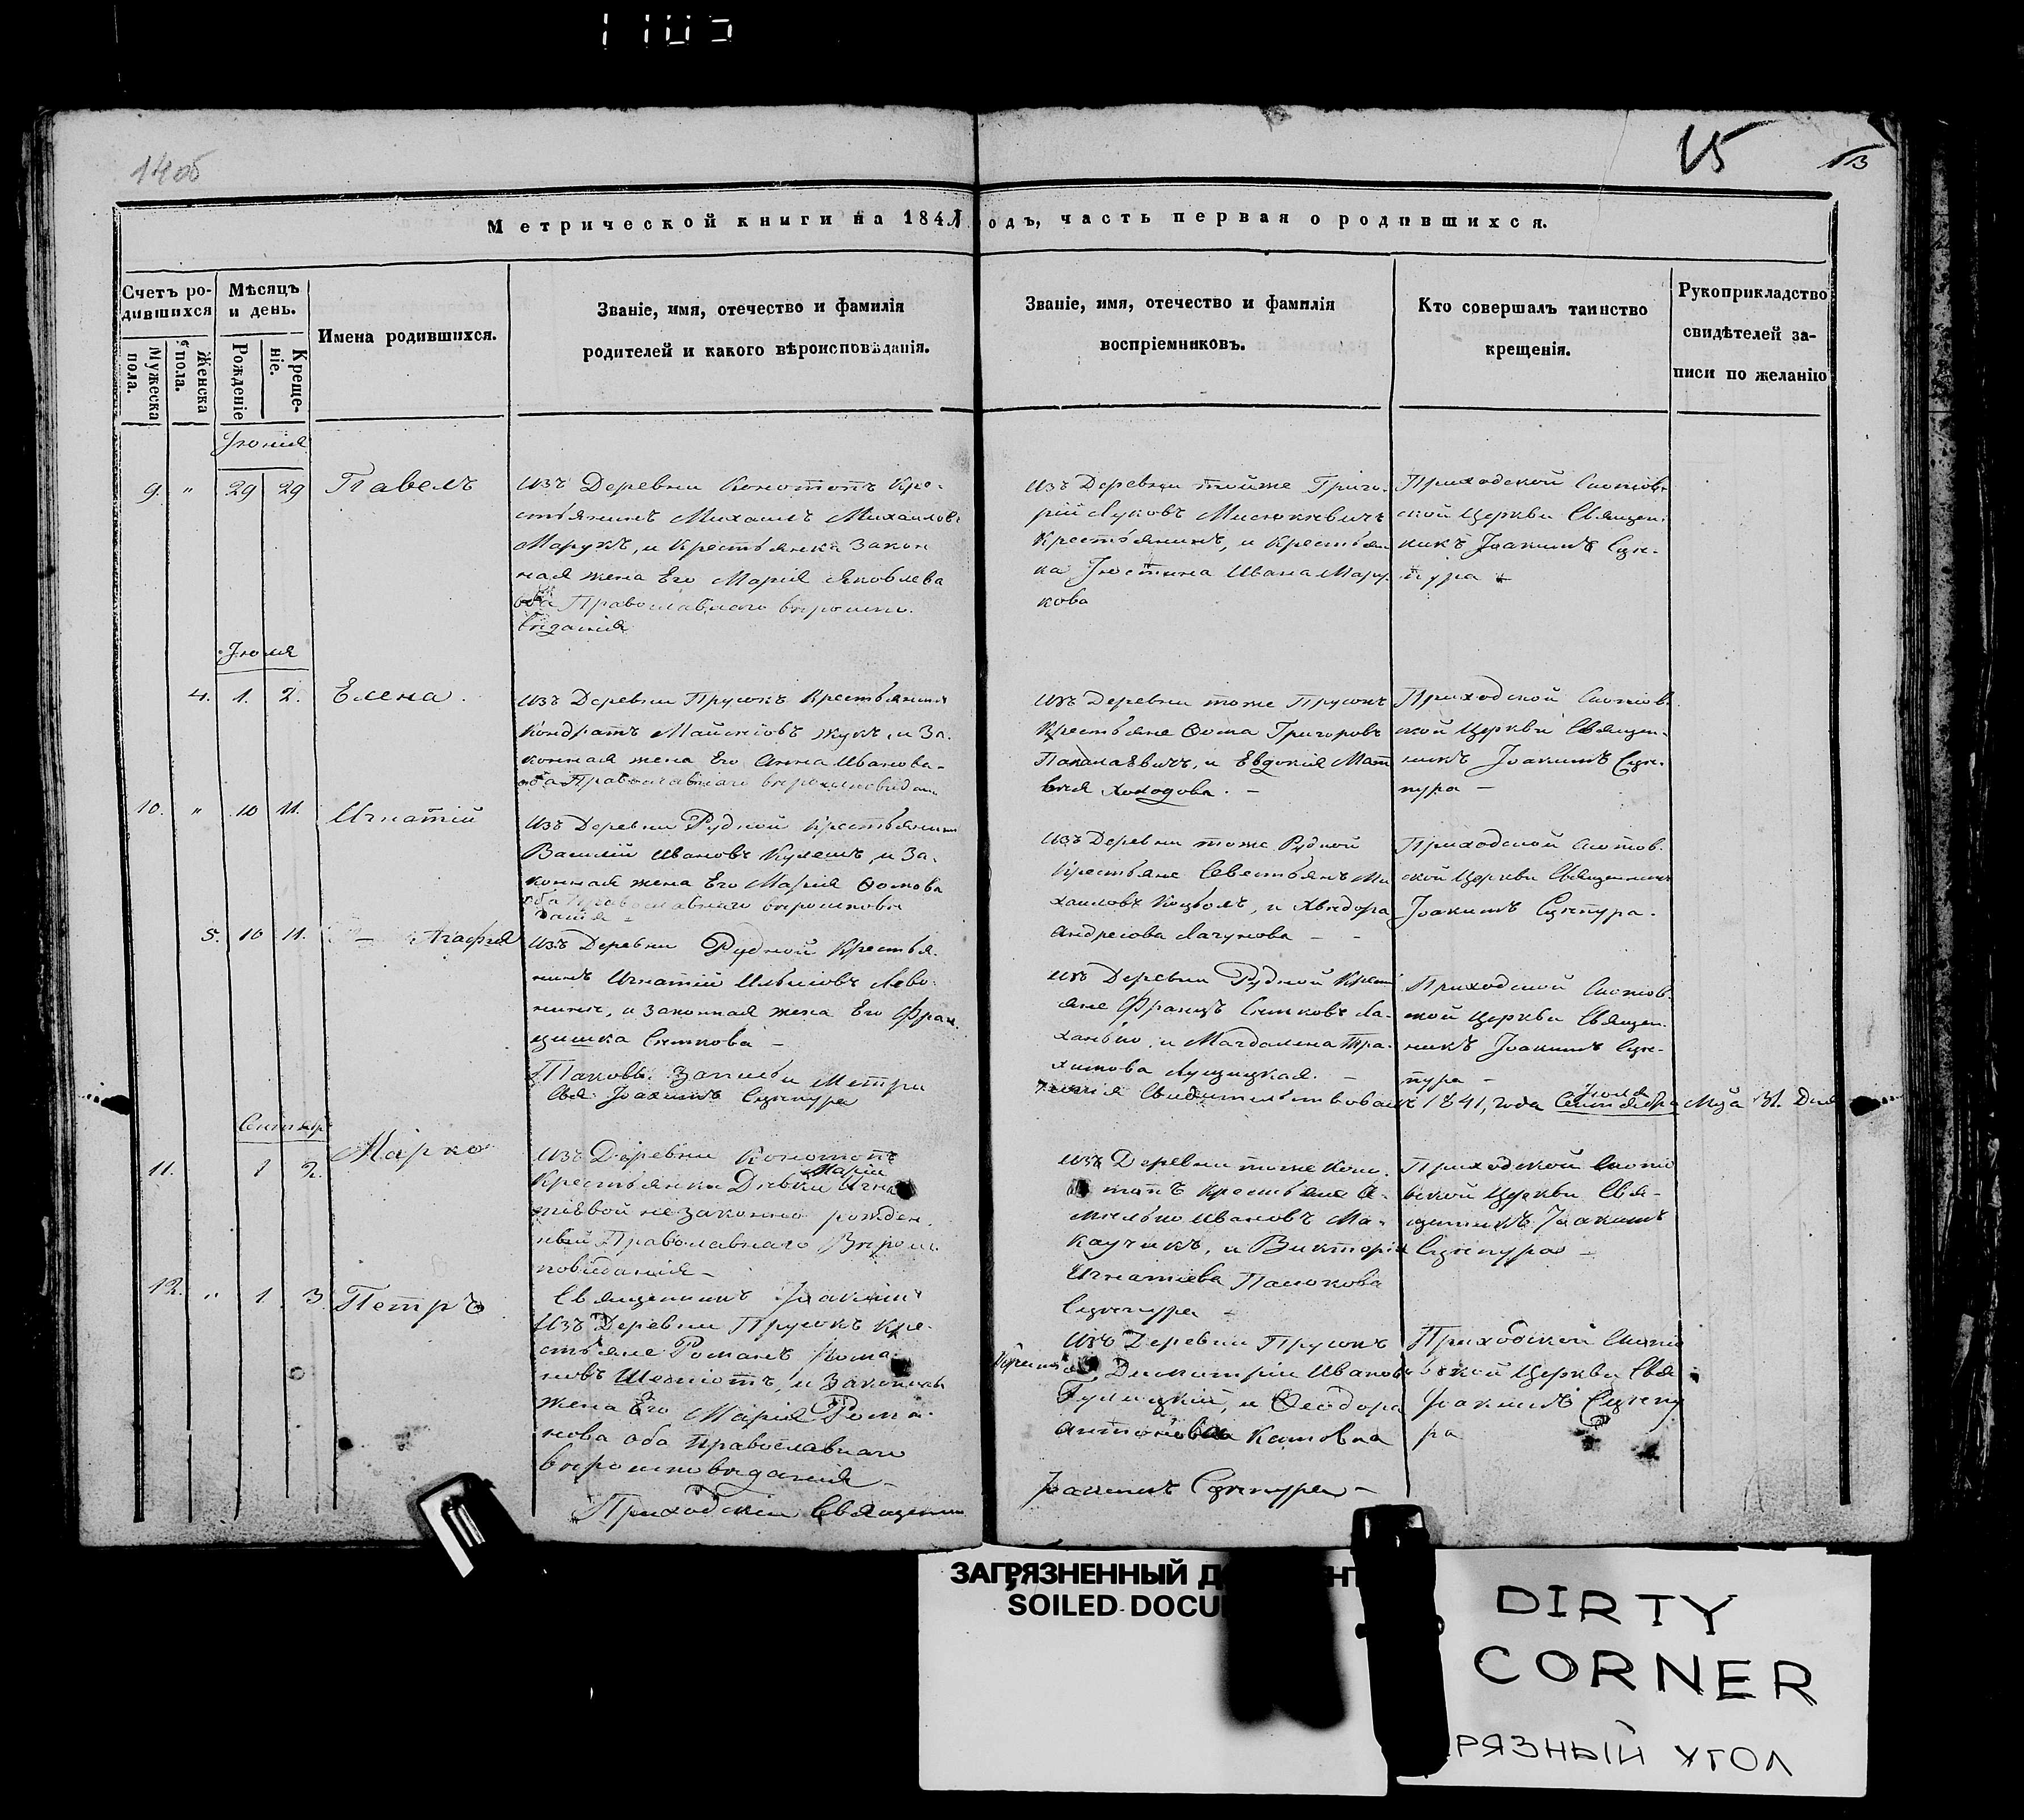 1105
14 об
15
13
Метрической книги на 1841 годъ, часть первая о родившихся.
Счетъ ро-
дившихся
Мужеска
пола.
Женска
пола.
Мѣсяцъ
и день.
Рожденіе
Креще-
ніе.
Имена родившихся.
Званіе, имя, отечество и фамилія
родителей и какого вѣроисповѣданія.
Званіе, имя, отечество и фамилія
воспріемниковъ.
Кто совершалъ таинство
крещенія.
Рукоприкладство
свидѣтелей за-
писи по желанію
Іюнія
9. " 29 29 Павелъ
изъ Деревни Конотопъ Кре-
стьянинъ Михаилъ Михаиловъ
Марукъ, и крестьянка Закон
ная жена Его Марія Яковлева
оба Православнаго вѣроиспо
вѣданія
изъ Деревни тойже Григо-
рій Луковъ Мисюкевичъ
Крестьянинъ, и крестьян
ка Іюстина Ивана Мару-
кова
Приходской
ской Церкви Священ-
никъ Іоакимъ Сцѣ-
пура
Іюлія
4. 1. 2. Елена.
изъ Деревни Прусокъ Крестьянинъ
Кондратъ Жукъ, и За-
конная жена Его Анна Иванова-
оба Православнаго вѣроисповѣдан
изъ Деревни тоже Прусокъ
Крестьяне Ѳома Григоровъ
и Евдокія Мат
вѣя Холодова. -
Приходской
ской Церкви Священ-
никъ Іоакимъ Сцѣ-
пура -
10. " 10 11. Игнатій
Изъ Деревни Рудной Крестьянинъ
Василій Ивановъ Кулешъ, и За-
конная жена Его Марія Ѳомова
оба Православнаго вѣроисповѣ
данія -
изъ Деревни тоже Рудной
Крестьяне Севестьянъ Ми
хаиловъ и Хведора
Андреова Лагунова - -
Приходской
ской Церкви Священникъ
Іоакимъ Сцѣпура.
5. 10 11. - Агафія
Изъ Деревни Рудной Крестья-
нинъ Игнатій Лево-
и законная жена Его Фран-
цишка -
изъ Деревни Рудной Крест
яне Францъ
и Магдалена
Приходской
ской Церкви Священ-
никъ Іоакимъ Сцѣ-
пура -
Таковы записи Метри
Свя. Іоакимъ Сцѣпура
Свидѣтельствовалъ 1841, года Іюля Сентября Мца 31. Дня
Сентябр
11. 1 2. Марко
изъ Деревни Конотопъ
Крестьянки Дѣвки Маріи Игна
тіевой незаконно рожден-
ный Православнаго Вѣроис
повѣданія -
Священникъ Іоакимъ
изъ Деревни тоже Коно-
топъ крестьяне О-
мельно Ивановъ Ма-
каучикъ, и Викторія
Игнатіева Панюкова
Сцѣпура
Приходской
вской Церкви Свя-
щенникъ Іоакимъ
Сцѣпура -
12. " 1. 3 Петръ
Изъ Деревни Прусокъ Кре-
стьяне Романъ Рома
новъ и законная
жена Его Марія Рома-
нова оба Православнаго
вѣроисповѣданія -
Приходскій Священни
Изъ Деревни Прусокъ
Димитрій Ивановъ
и Ѳеодора
Антонова
Іоакимъ Сцѣпура -
Приходской
вской Церкви Свя
Іоакимъ Сцѣпу
ра
ЗАГРЯЗНЕННЫЙ Д НТ
SOILED DOCU
DIRTY
CORNER
РЯЗНЫЙ УГОЛ